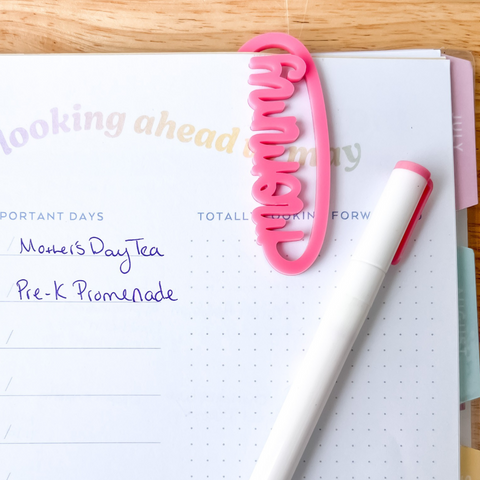 looking ahead to may
PORTANT DAYS
TOTALLY LOOKING FORW
Mother's Day Tea
Pre-K Promenade
JULY
AUGUST